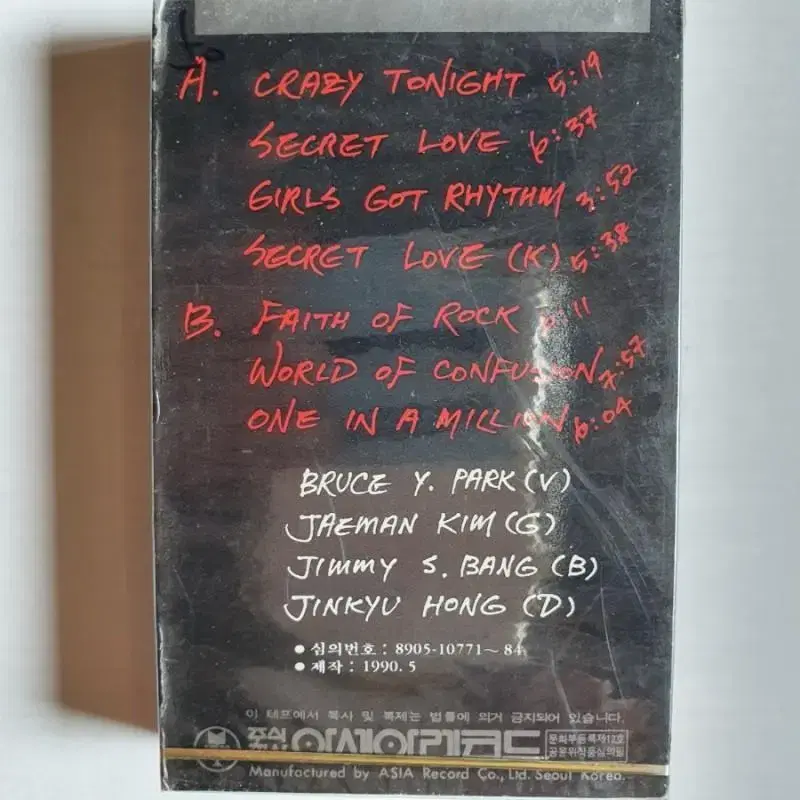 A. CRAZY TONIGHT 5:19
SECRET LOVE 6:37
GIRLS GOT RHYTHM 3:52
SECRET LOVE (K) 5:38
B. FAITH OF ROCK
WORLD OF CONFUSION 7:57
ONE IN A MILLION 6:04
BRUCE Y. PARK (V)
JAEMAN KIM (G)
JIMMY S. BANG (B)
JINKYU HONG (D)
● 심의번호 : 8905-10771~84
● 제작 : 1990. 5
이 테프에서 복사 및 복제는 법률에 의거 금지되어 있습니다.
주식회사 아세아레코드 문화부등록제12호
공윤위작품심의필
Manufactured by ASIA Record Co., Ltd. Seoul Korea.